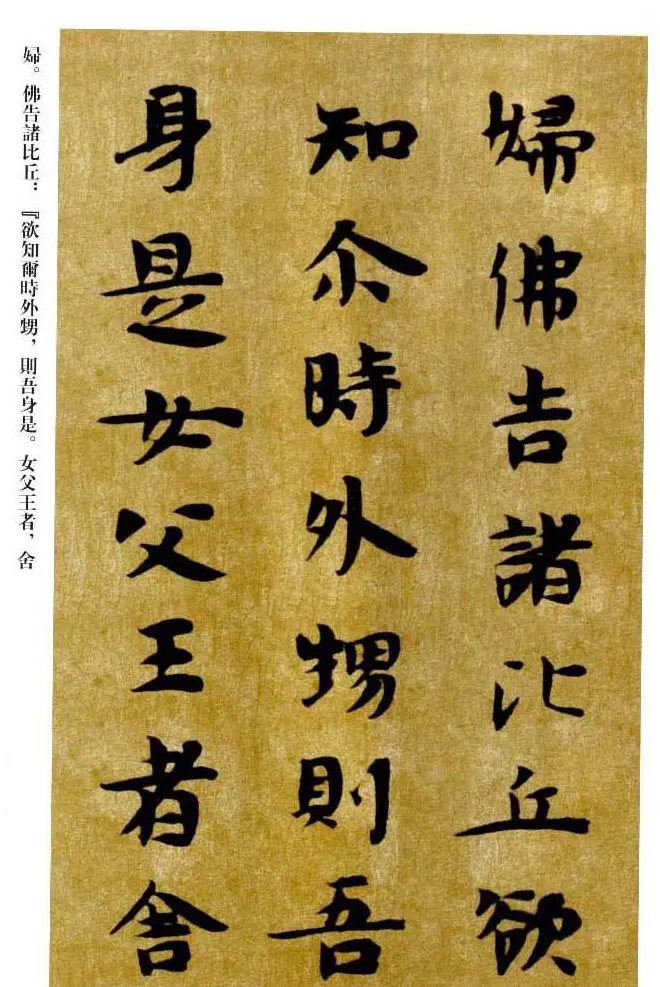 婦佛告諸比丘欲
知尒時外甥則吾
身是女父王者舍
婦。佛告諸比丘：『欲知爾時外甥，則吾身是。女父王者，舍